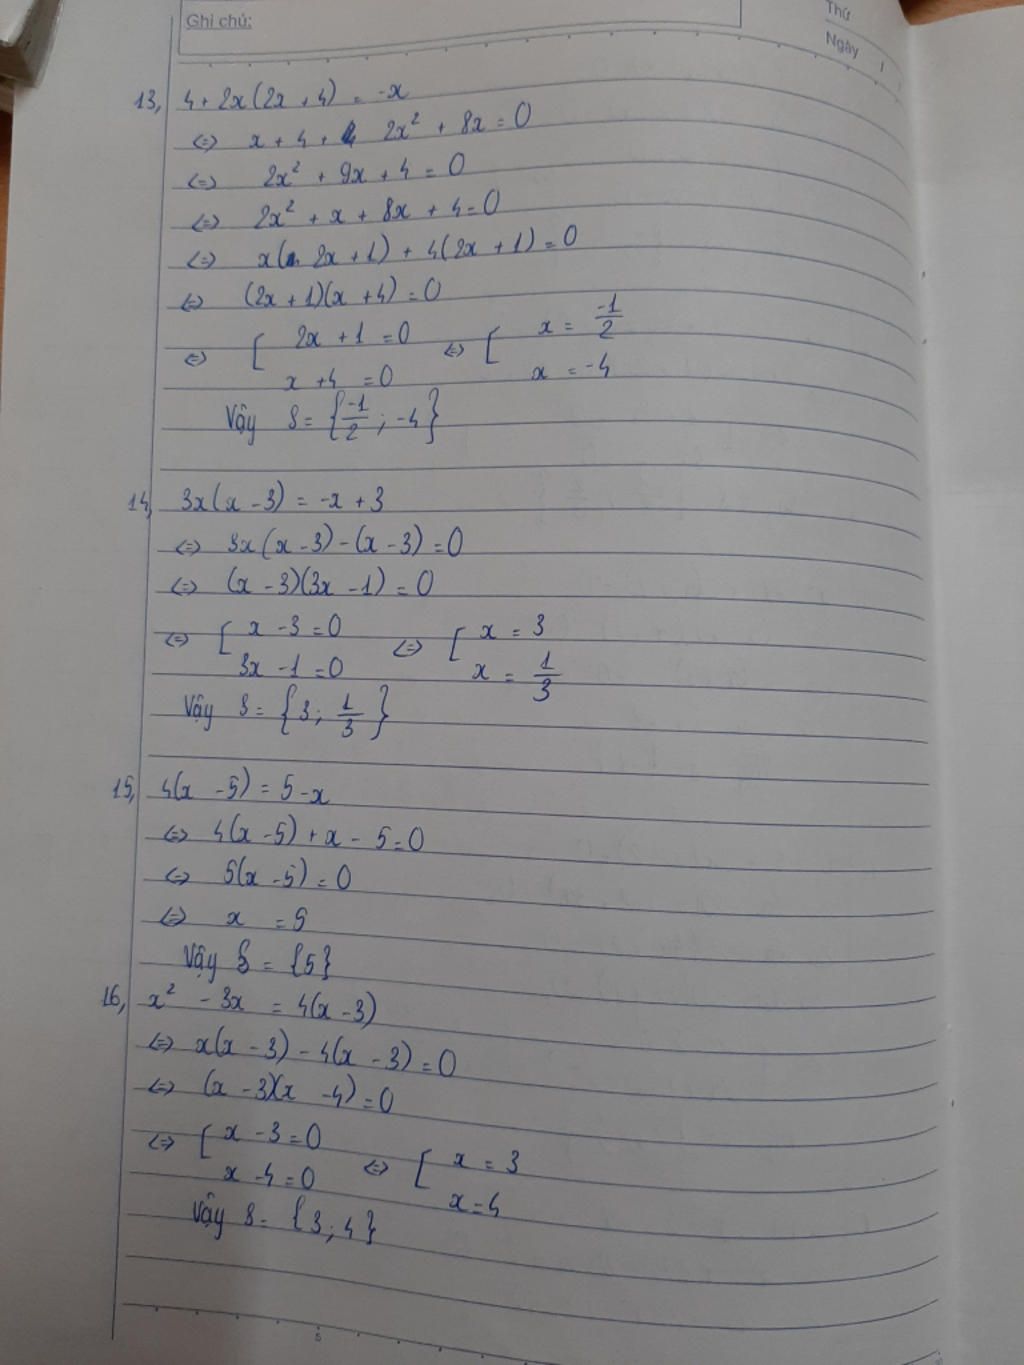 Ghi chú:
Thứ
Ngày
13, 4 + 2x(2x + 4) = -x
⇔ x + 4 + 2x² + 8x = 0
⇔ 2x² + 9x + 4 = 0
⇔ 2x² + x + 8x + 4 = 0
⇔ x(2x + 1) + 4(2x + 1) = 0
⇔ (2x + 1)(x + 4) = 0
⇔ [ 2x + 1 = 0 ⇔ [ x = -1/2
x + 4 = 0 x = -4
Vậy S = {-1/2 ; -4}
14, 3x(x - 3) = -x + 3
⇔ 3x(x - 3) - (x - 3) = 0
⇔ (x - 3)(3x - 1) = 0
⇔ [ x - 3 = 0 ⇔ [ x = 3
3x - 1 = 0 x = 1/3
Vậy S = {3 ; 1/3}
15, 4(x - 5) = 5 - x
⇔ 4(x - 5) + x - 5 = 0
⇔ 5(x - 5) = 0
⇔ x = 5
Vậy S = {5}
16, x² - 3x = 4(x - 3)
⇔ x(x - 3) - 4(x - 3) = 0
⇔ (x - 3)(x - 4) = 0
⇔ [ x - 3 = 0 ⇔ [ x = 3
x - 4 = 0 x = 4
Vậy S = {3 ; 4}
5